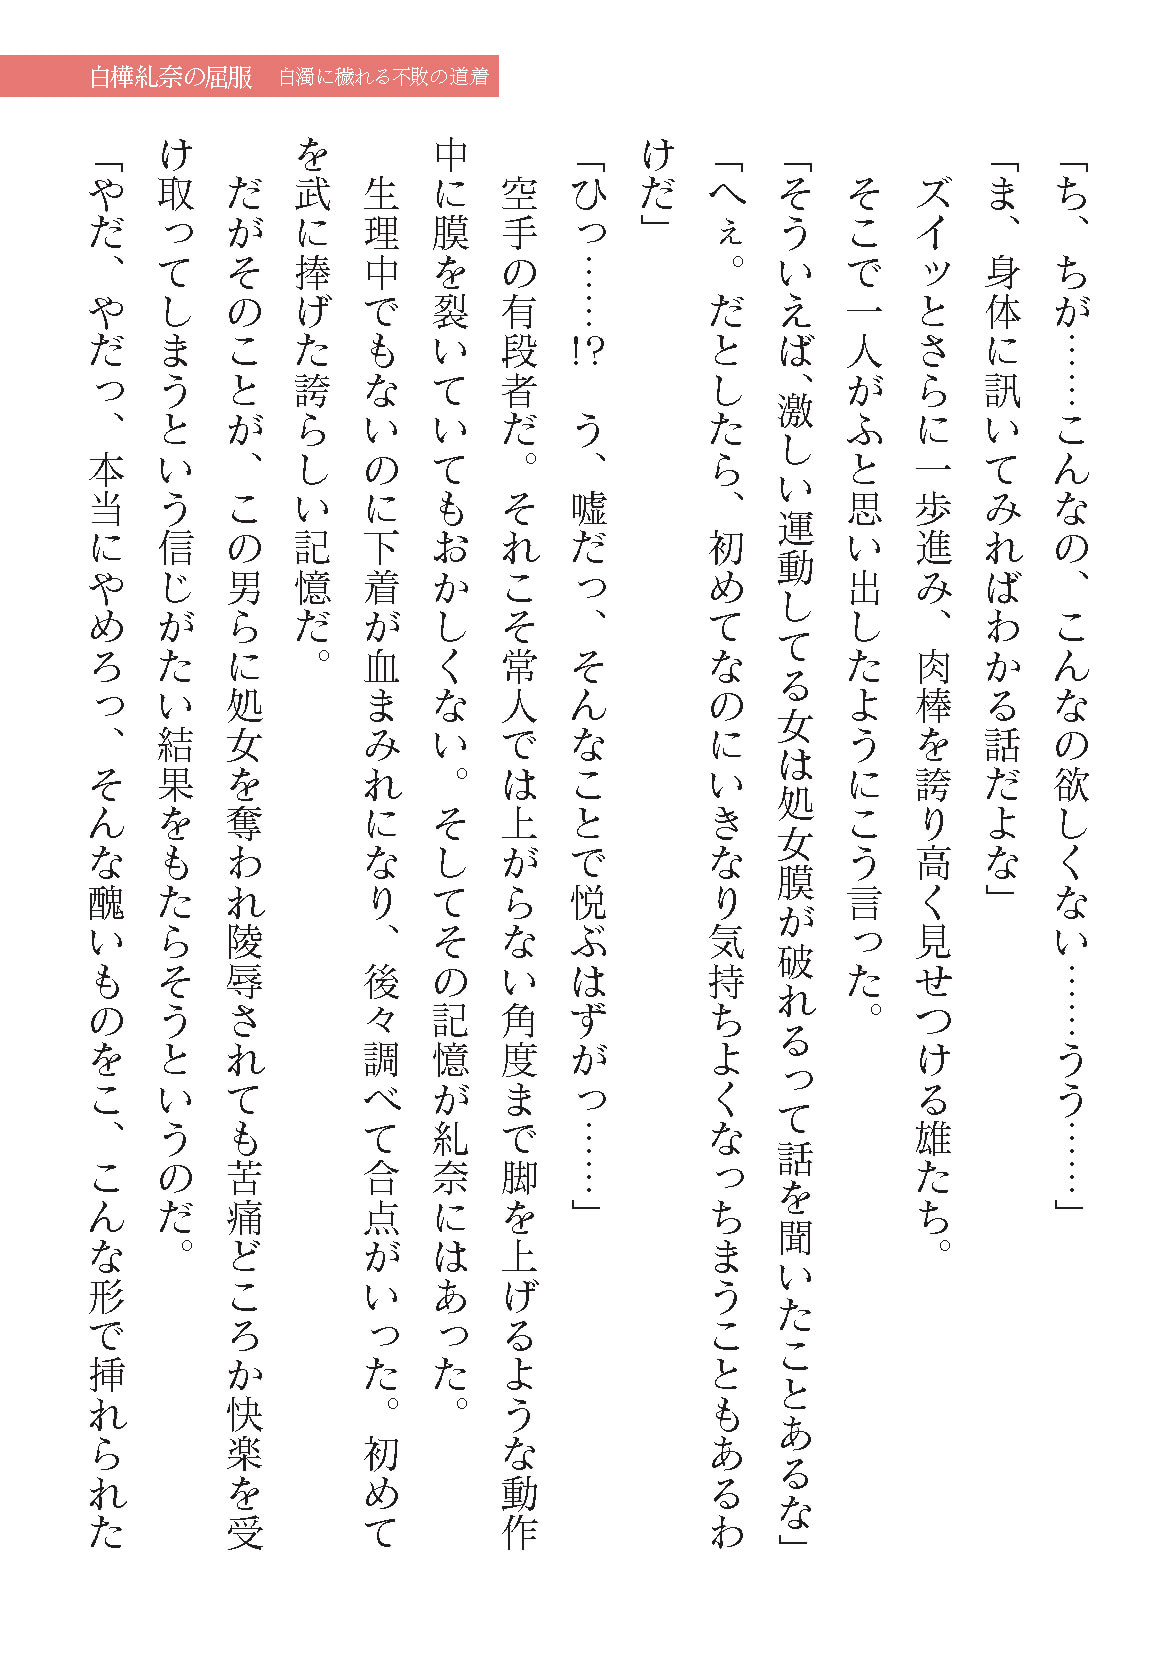 白樺糺奈の屈服　白濁に穢れる不敗の道着
「ち、ちが……こんなの、こんなの欲しくない………うう……」
「ま、身体に訊いてみればわかる話だよな」
　ズイッとさらに一歩進み、肉棒を誇り高く見せつける雄たち。
　そこで一人がふと思い出したようにこう言った。
「そういえば、激しい運動してる女は処女膜が破れるって話を聞いたことあるな」
「へぇ。だとしたら、初めてなのにいきなり気持ちよくなっちまうこともあるわ
けだ」
「ひっ……!?　う、嘘だっ、そんなことで悦ぶはずがっ……」
　空手の有段者だ。それこそ常人では上がらない角度まで脚を上げるような動作
中に膜を裂いていてもおかしくない。そしてその記憶が糺奈にはあった。
　生理中でもないのに下着が血まみれになり、後々調べて合点がいった。初めて
を武に捧げた誇らしい記憶だ。
　だがそのことが、この男らに処女を奪われ陵辱されても苦痛どころか快楽を受
け取ってしまうという信じがたい結果をもたらそうというのだ。
「やだ、やだっ、本当にやめろっ、そんな醜いものをこ、こんな形で挿れられた